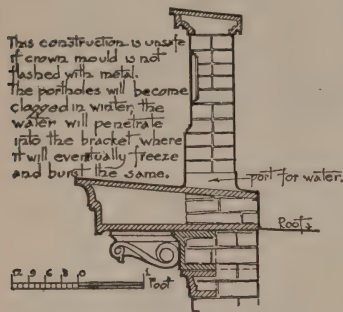 This construction is unsafe
if crown mould is not
flashed with metal.
The portholes will become
clogged in winter, the
water will penetrate
into the bracket where
it will eventually freeze
and burst the same.
port for water.
Roof
12 9 6 3 0 1
Foot